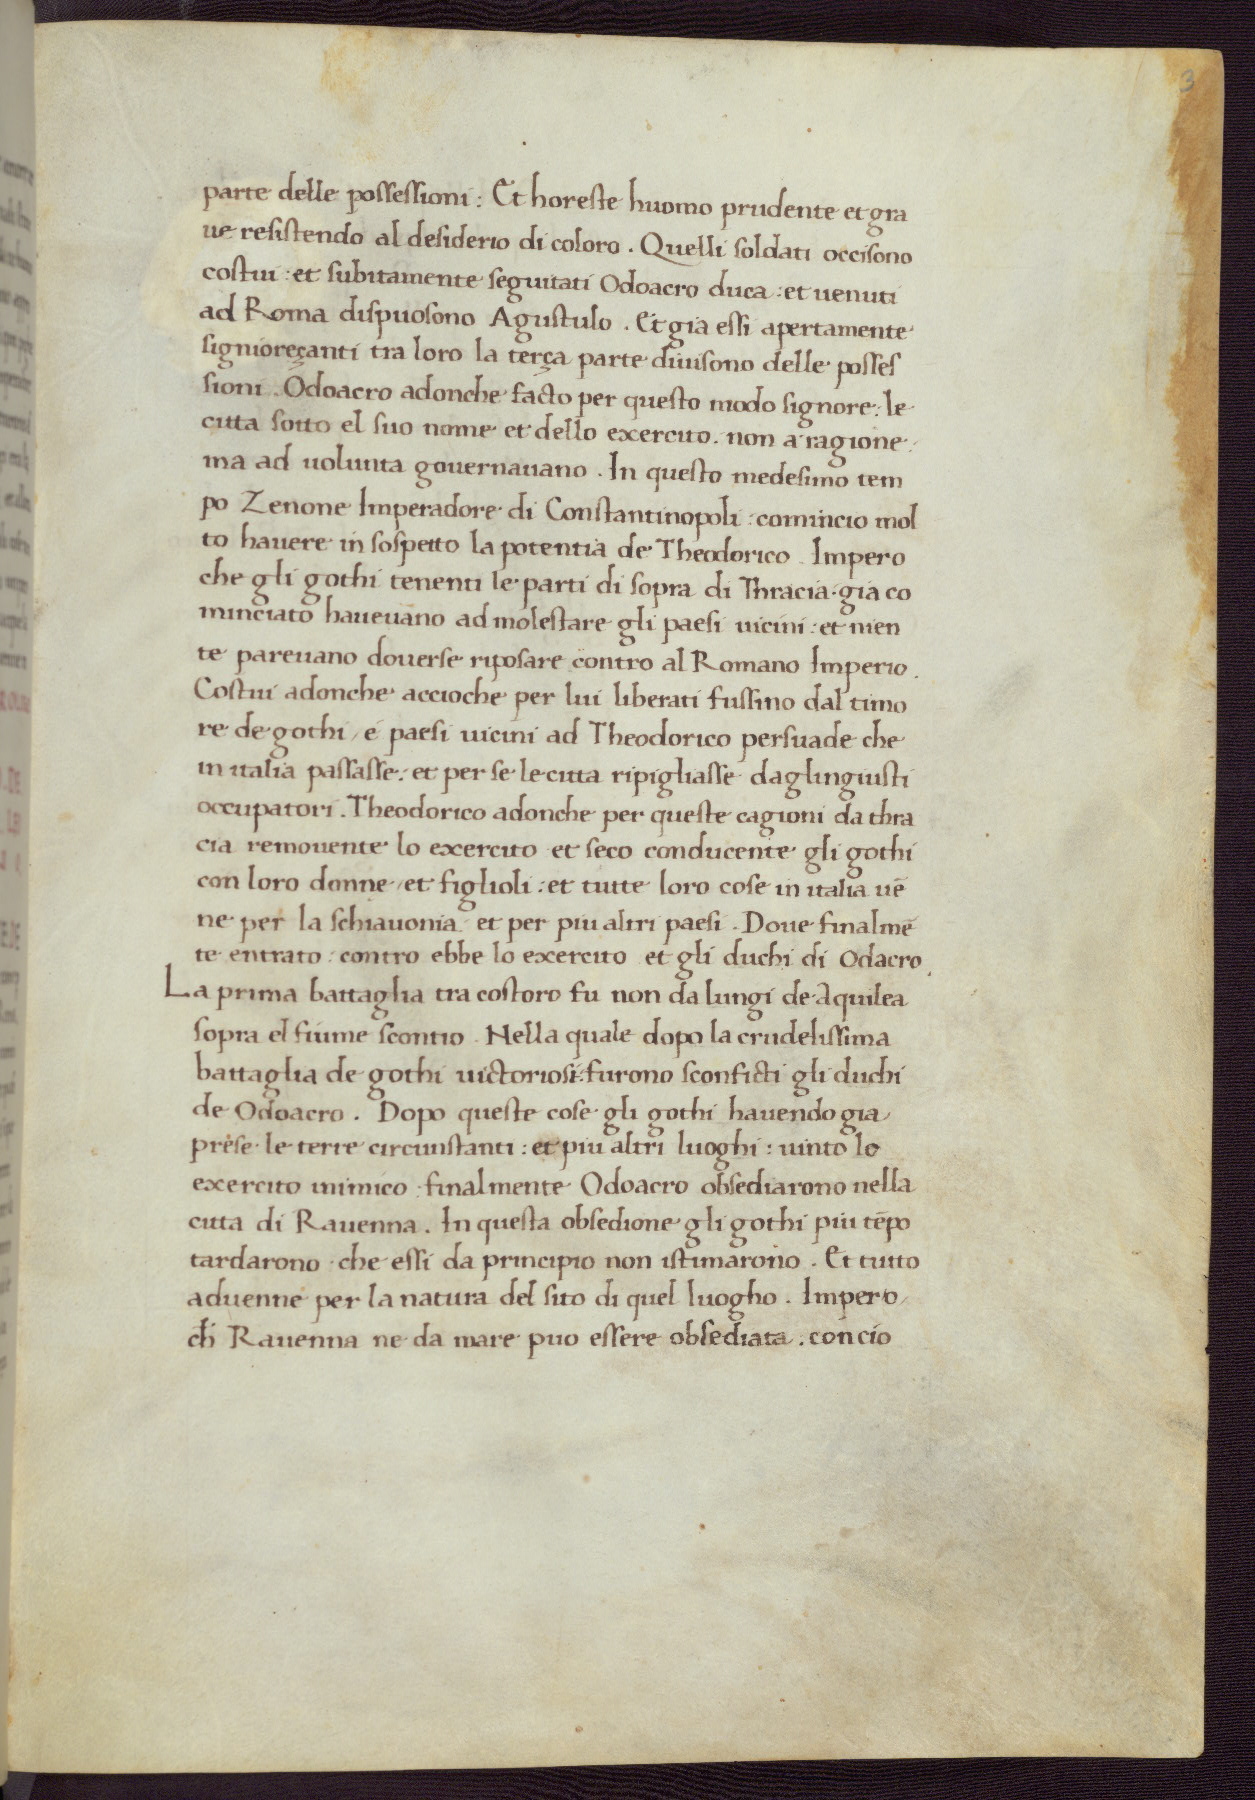 3
parte delle possessioni : Et horeste huomo prudente et gra
ue resistendo al desiderio di coloro . Quelli soldati occisono
costui : et subitamente seguitati Odoacro duca : et uenuti
ad Roma dispuosono Agustulo . Et gia essi apertamente
signioreçanti tra loro la terça parte diuisono delle posses
sioni . Odoacro adonche facto per questo modo signore : le
citta sotto el suo nome et dello exercito . non a ragione :
ma ad uolunta gouernauano . In questo medesimo tem
po Zenone Imperadore di Constantinopoli : comincio mol
to hauere in sospetto la potentia de Theodorico . Impero
che gli gothi tenenti le parti di sopra di Thracia . gia co
minciato haueuano ad molestare gli paesi uicini : et nien
te pareuano douerse riposare contro al Romano Imperio .
Costui adonche accioche per lui liberati fussino dal timo
re de gothi / e paesi uicini ad Theodorico persuade che
in italia passasse : et per se le citta ripigliasse daglingiusti
occupatori . Theodorico adonche per queste cagioni da thra
cia remouente lo exercito et seco conducente gli gothi
con loro donne / et figlioli : et tutte loro cose in italia uē
ne per la schiauonia et per piu altri paesi . Doue finalmē
te entrato : contro ebbe lo exercito et gli duchi di Odacro .
La prima battaglia tra costoro fu non da lungi de Aquilea
sopra el fiume scontio . Nella quale dopo la crudelissima
battaglia de gothi uictoriosi : furono sconficti gli duchi
de Odoacro . Dopo queste cose gli gothi hauendo gia
prese le terre circunstanti : et piu altri luoghi : uinto lo
exercito inimico finalmente Odoacro obsediarono nella
citta di Rauenna . In questa obsedione gli gothi piu tēpo
tardarono che essi da principio non istimarono . Et tutto
aduenne per la natura del sito di quel luogho . Impero
ch̄ Rauenna ne da mare puo essere obsediata . concio